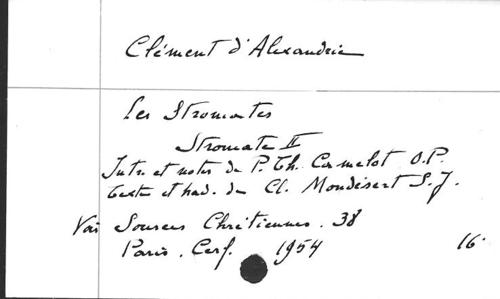 Clément d'Alexandrie
Les Stromates
Stromate II
Intr. et notes de P. Th. Camelot O.P.
texte et trad. de Cl. Mondésert S.J.
Voir Sources Chrétiennes. 38
Paris. Cerf. 1954 16°